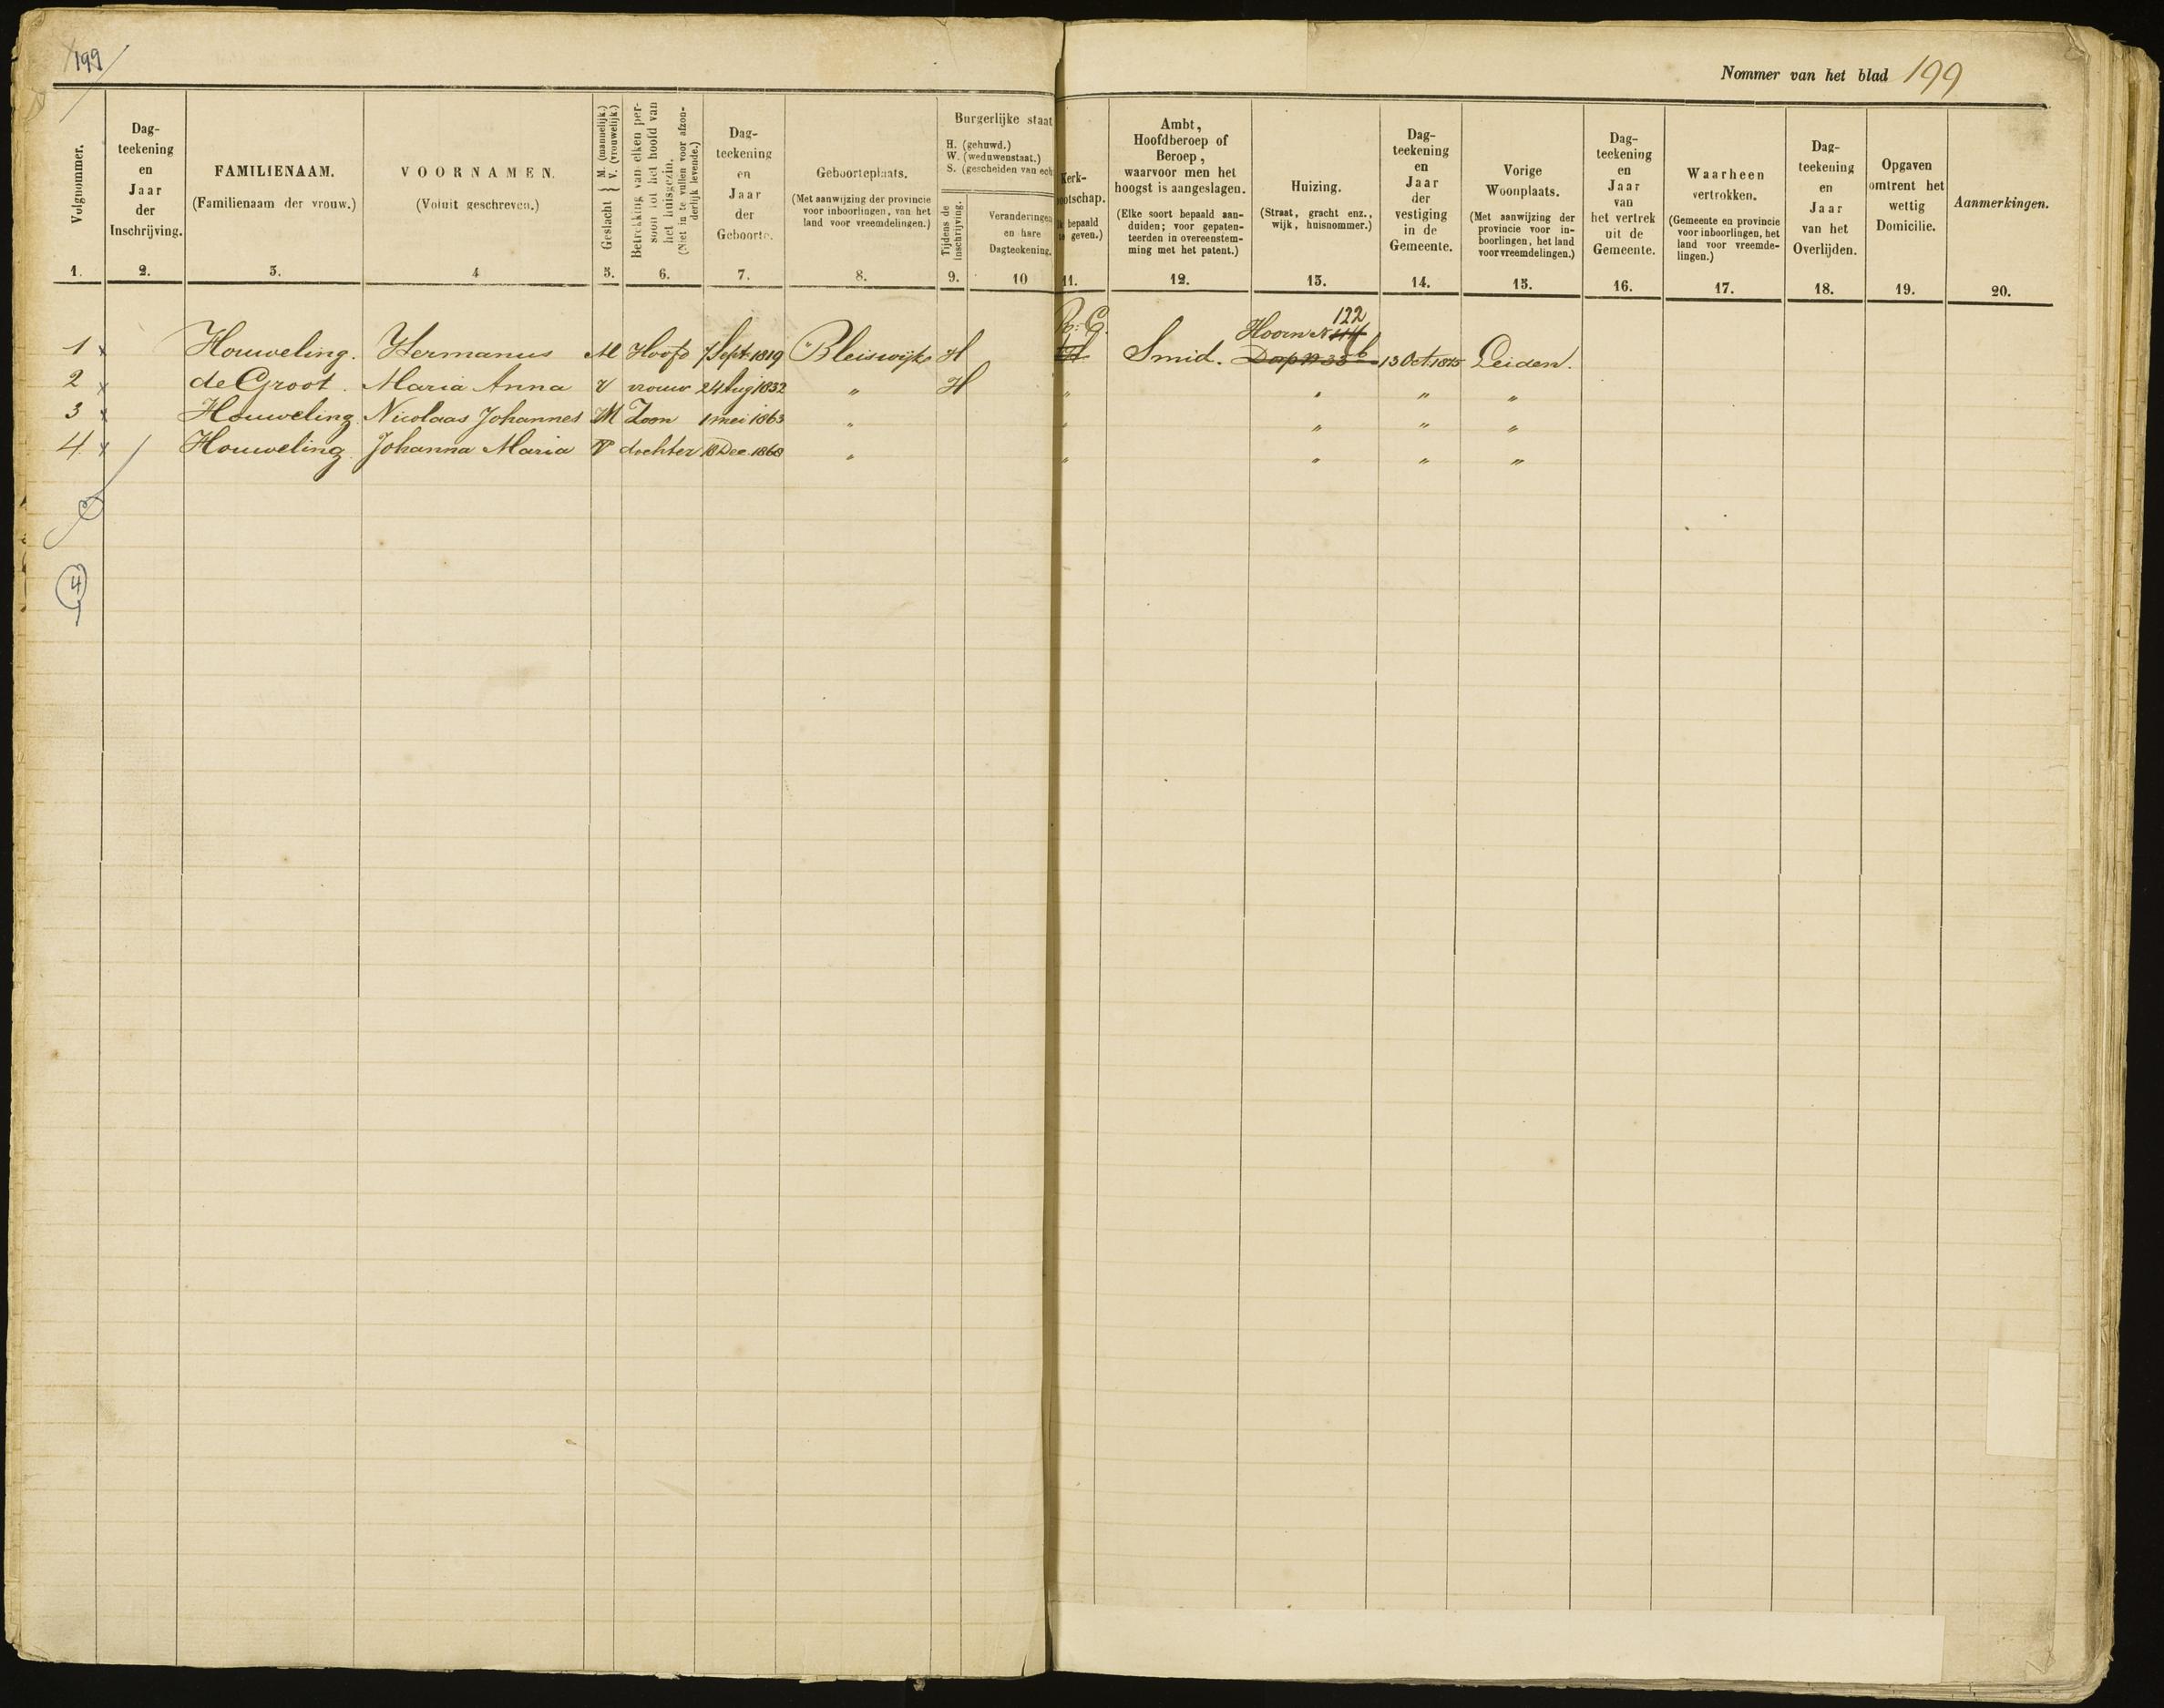 199
Nommer van het blad 199
Volgnommer.
1.
Dag-
teekening
en
Jaar
der
Inschrijving.
2.
FAMILIENAAM.
(Familienaam der vrouw.)
3.
VOORNAMEN.
(Voluit geschreven.)
4
Geslacht { M. (mannelijk.)
V. (vrouwelijk.)
5.
Betrekking van elken per-
soon tot het hoofd van
het huisgezin.
(Niet in te vullen voor afzon-
derlijk levende.)
6.
Dag-
teekening
en
Jaar
der
Geboorte.
7.
Geboorteplaats.
(Met aanwijzing der provincie
voor inboorlingen, van het
land voor vreemdelingen.)
8.
Burgerlijke staat
H. (gehuwd.)
W. (weduwenstaat.)
S. (gescheiden van ech
Tijdens de
inschrijving.
9.
Veranderingen
en hare
Dagteekening.
10
Kerk-
ootschap.
bepaald
te geven.)
11.
Ambt,
Hoofdberoep of
Beroep,
waarvoor men het
hoogst is aangeslagen.
(Elke soort bepaald aan-
duiden; voor gepaten-
teerden in overeenstem-
ming met het patent.)
12.
Huizing.
(Straat, gracht enz.,
wijk, huisnommer.)
13.
Dag-
teekening
en
Jaar
der
vestiging
in de
Gemeente.
14.
Vorige
Woonplaats.
(Met aanwijzing der
provincie voor in-
boorlingen, het land
voor vreemdelingen.)
15.
Dag-
teekening
en
Jaar
van
het vertrek
uit de
Gemeente.
16.
Waarheen
vertrokken.
(Gemeente en provincie
voor inboorlingen, het
land voor vreemde-
lingen.)
17.
Dag-
teekening
en
Jaar
van het
Overlijden.
18.
Opgaven
omtrent het
wettig
Domicilie.
19.
Aanmerkingen.
20.
R. C. Hoorn N 122
1 x Houweling. Hermanus M Hoofd 7 Sept. 1819 Bleiswijk H Smid. Dorp N 33 b 13 Oct 1875 Leiden.
2 x de Groot. Maria Anna V vrouw 24 Aug 1832 " H " " " "
3 x Houweling. Nicolaas Johannes M Zoon 1 mei 1863 " " " " "
4 x Houweling. Johanna Maria V dochter 18 Dec. 1868 " " " " "
4